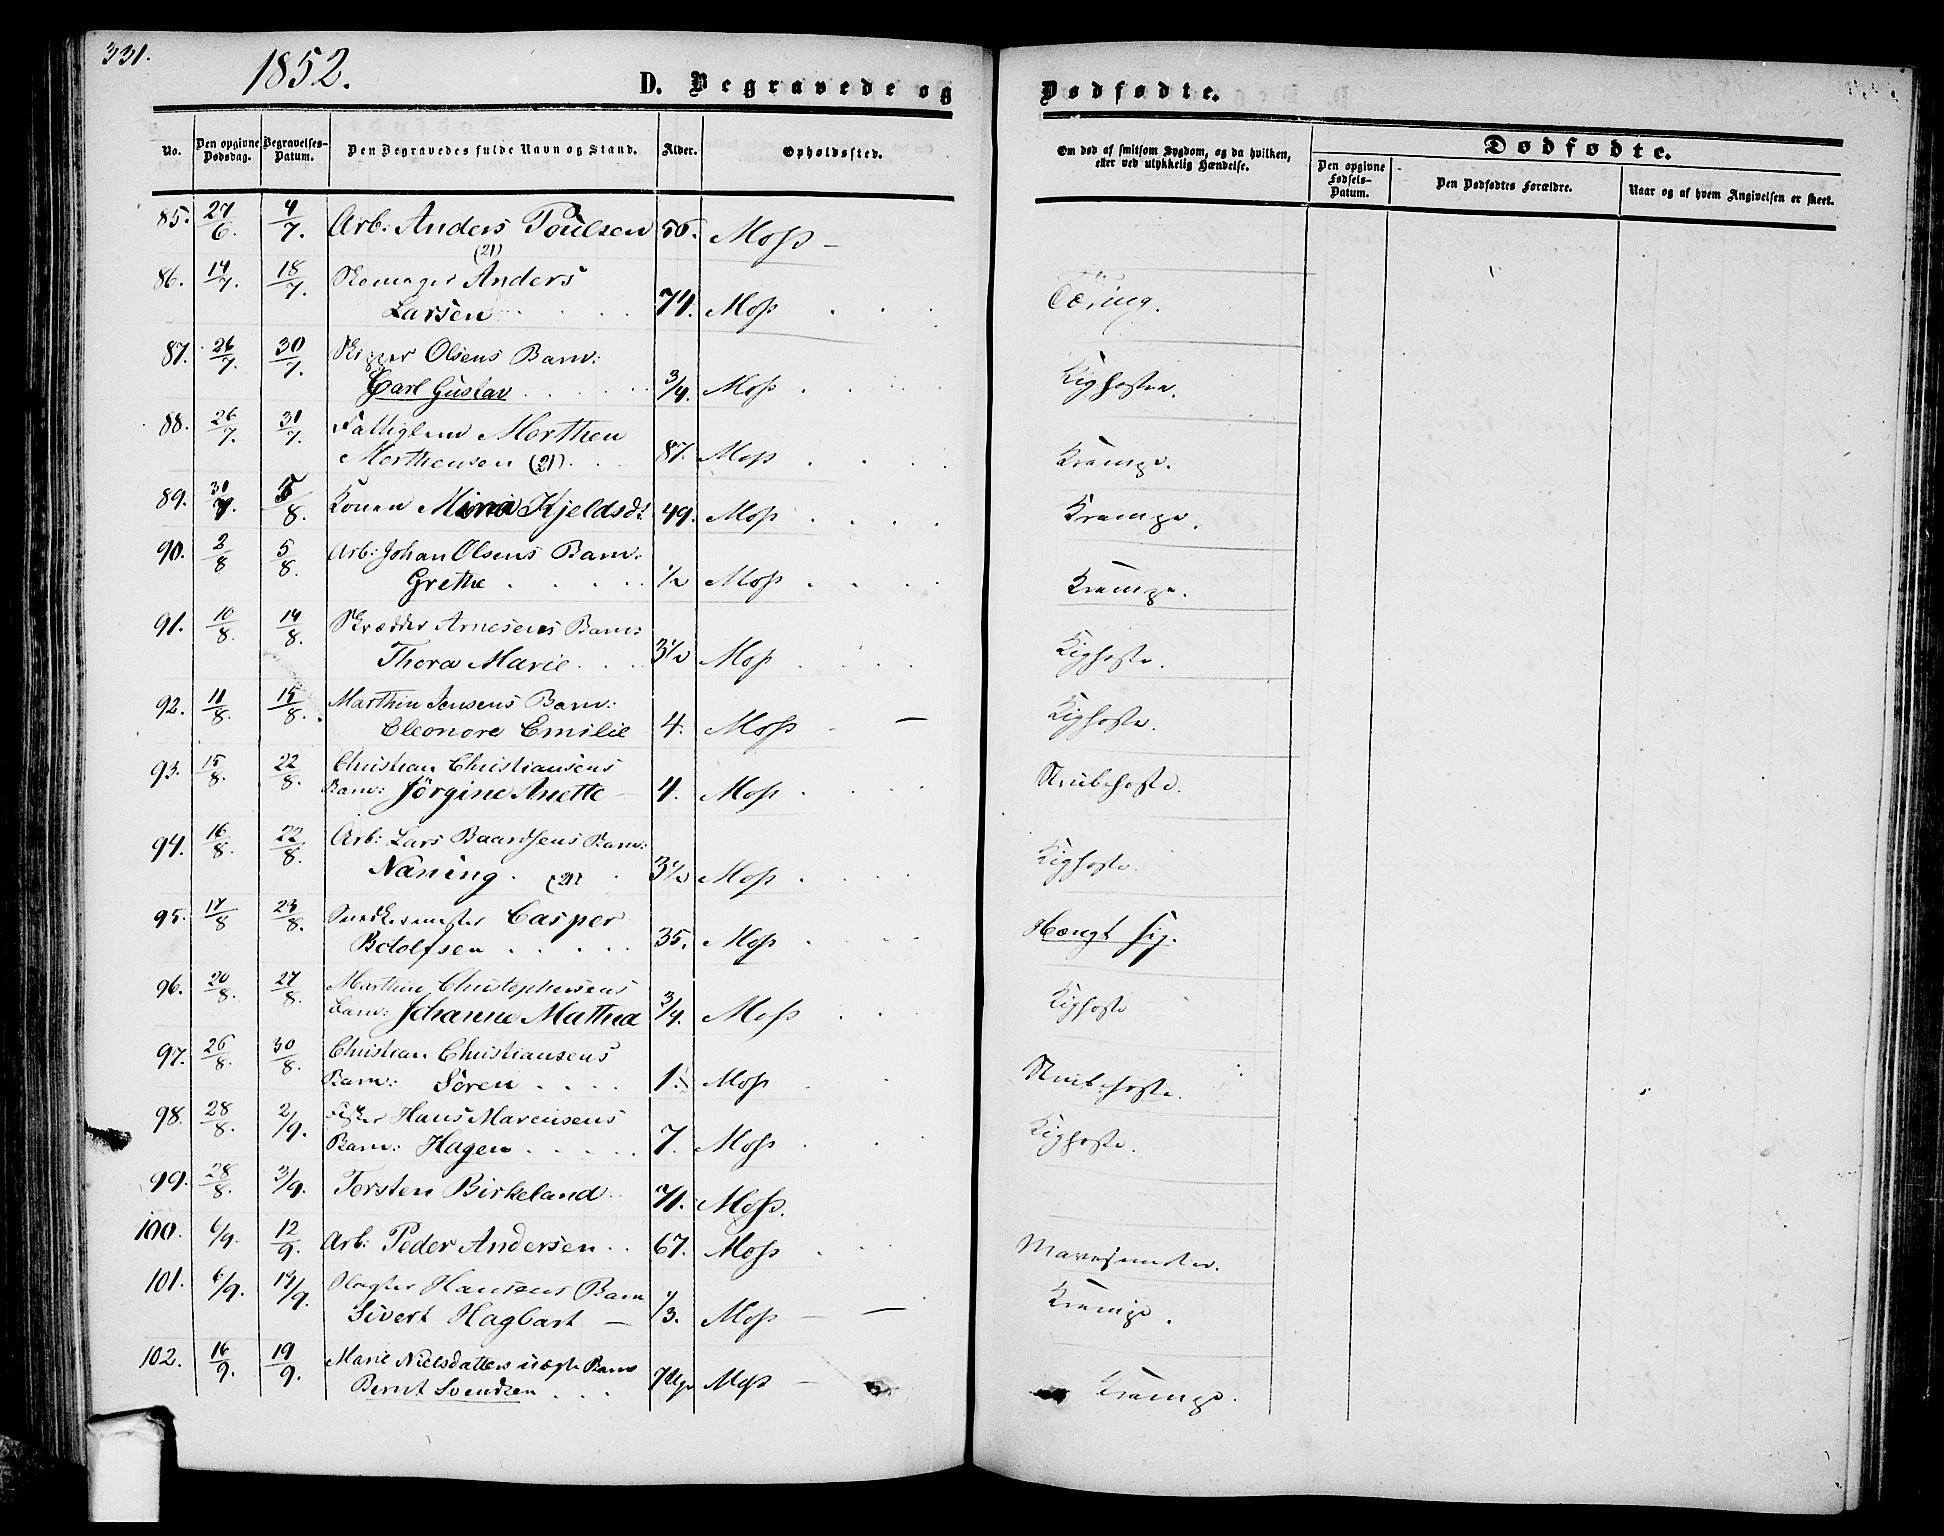 331.
1852.
D. Begravede og Dødfødte.
No. | Den opgivne Dødsdag. | Begravelses-Datum. | Den Begravedes fulde Navn og Stand. | Alder. | Opholdssted. | Om død af smitsom Sygdom, og da hvilken, eller ved ulykkelig Hændelse. | Dødfødte. | Den opgivne Fødsels-Datum. | Den Dødfødtes Forældre. | Naar og af hvem Angivelsen er skeet.
85. 27/6. 4/7. Arb: Anders Poulsen 56. Moss –
(21)
86. 14/7. 18/7. Skomager Anders
Larsen 74. Moss Tæring.
87. 26/7. 30/7. Skipper Olsens Barn:
Carl Gustav 3/4 Moss Kighosten.
88. 26/7. 31/7. Fattiglem Morthen
Morthensen (21). 87. Moss Krampe.
89. 30/7. 5/8. Konen Mina Kjeldsd: 49. Moss Krampe.
90. 2/8 5/8. Arb: Johan Olsens Barn:
Grethe 1/2 Moss Krampe.
91. 10/8. 14/8. Skrædder Arnesens Barn:
Thora Marie 3 1/2 Moss Kighoste.
92. 11/8. 15/8. Marthin Jensens Barn:
Eleonore Emilie 4. Moss Kighoste.
93. 15/8. 22/8. Christian Christiansens
Barn: Jörgine Anette – 4. Moss Strubehoste.
94. 16/8. 22/8. Arb: Lars Baardsens Barn:
Naning. (21) 3 1/2 Moss Kighoste.
95. 17/8 23/8. Snedkermester Casper
Botolfsen 35. Moss Hængt sig.
96. 20/8. 27/8. Marthin Christophersens
Barn: Johanne Mathea 3/4. Moss Kighoste
97. 26/8. 30/8. Christian Christiansens
Barn: Sören 1. Moss Strubehoste.
98. 28/8. 2/9. Fisker Hans Marcusens
Barn: Hagen 7. Moss Kighoste.
99. 28/8. 3/9. Torsten Birkeland 71. Moss.
100. 6/9. 12/9. Arb: Peder Andersen 67. Moss Mavesmerter.
101. 6/9. 14/9. Slagter Hansens Barn
Sivert Hagbart – 1/3. Moss Krampe.
102. 16/9. 19/9. Marie Nielsdatters uægte Barn
Bernt Svendsen 7 Uger Moss – Krampe.